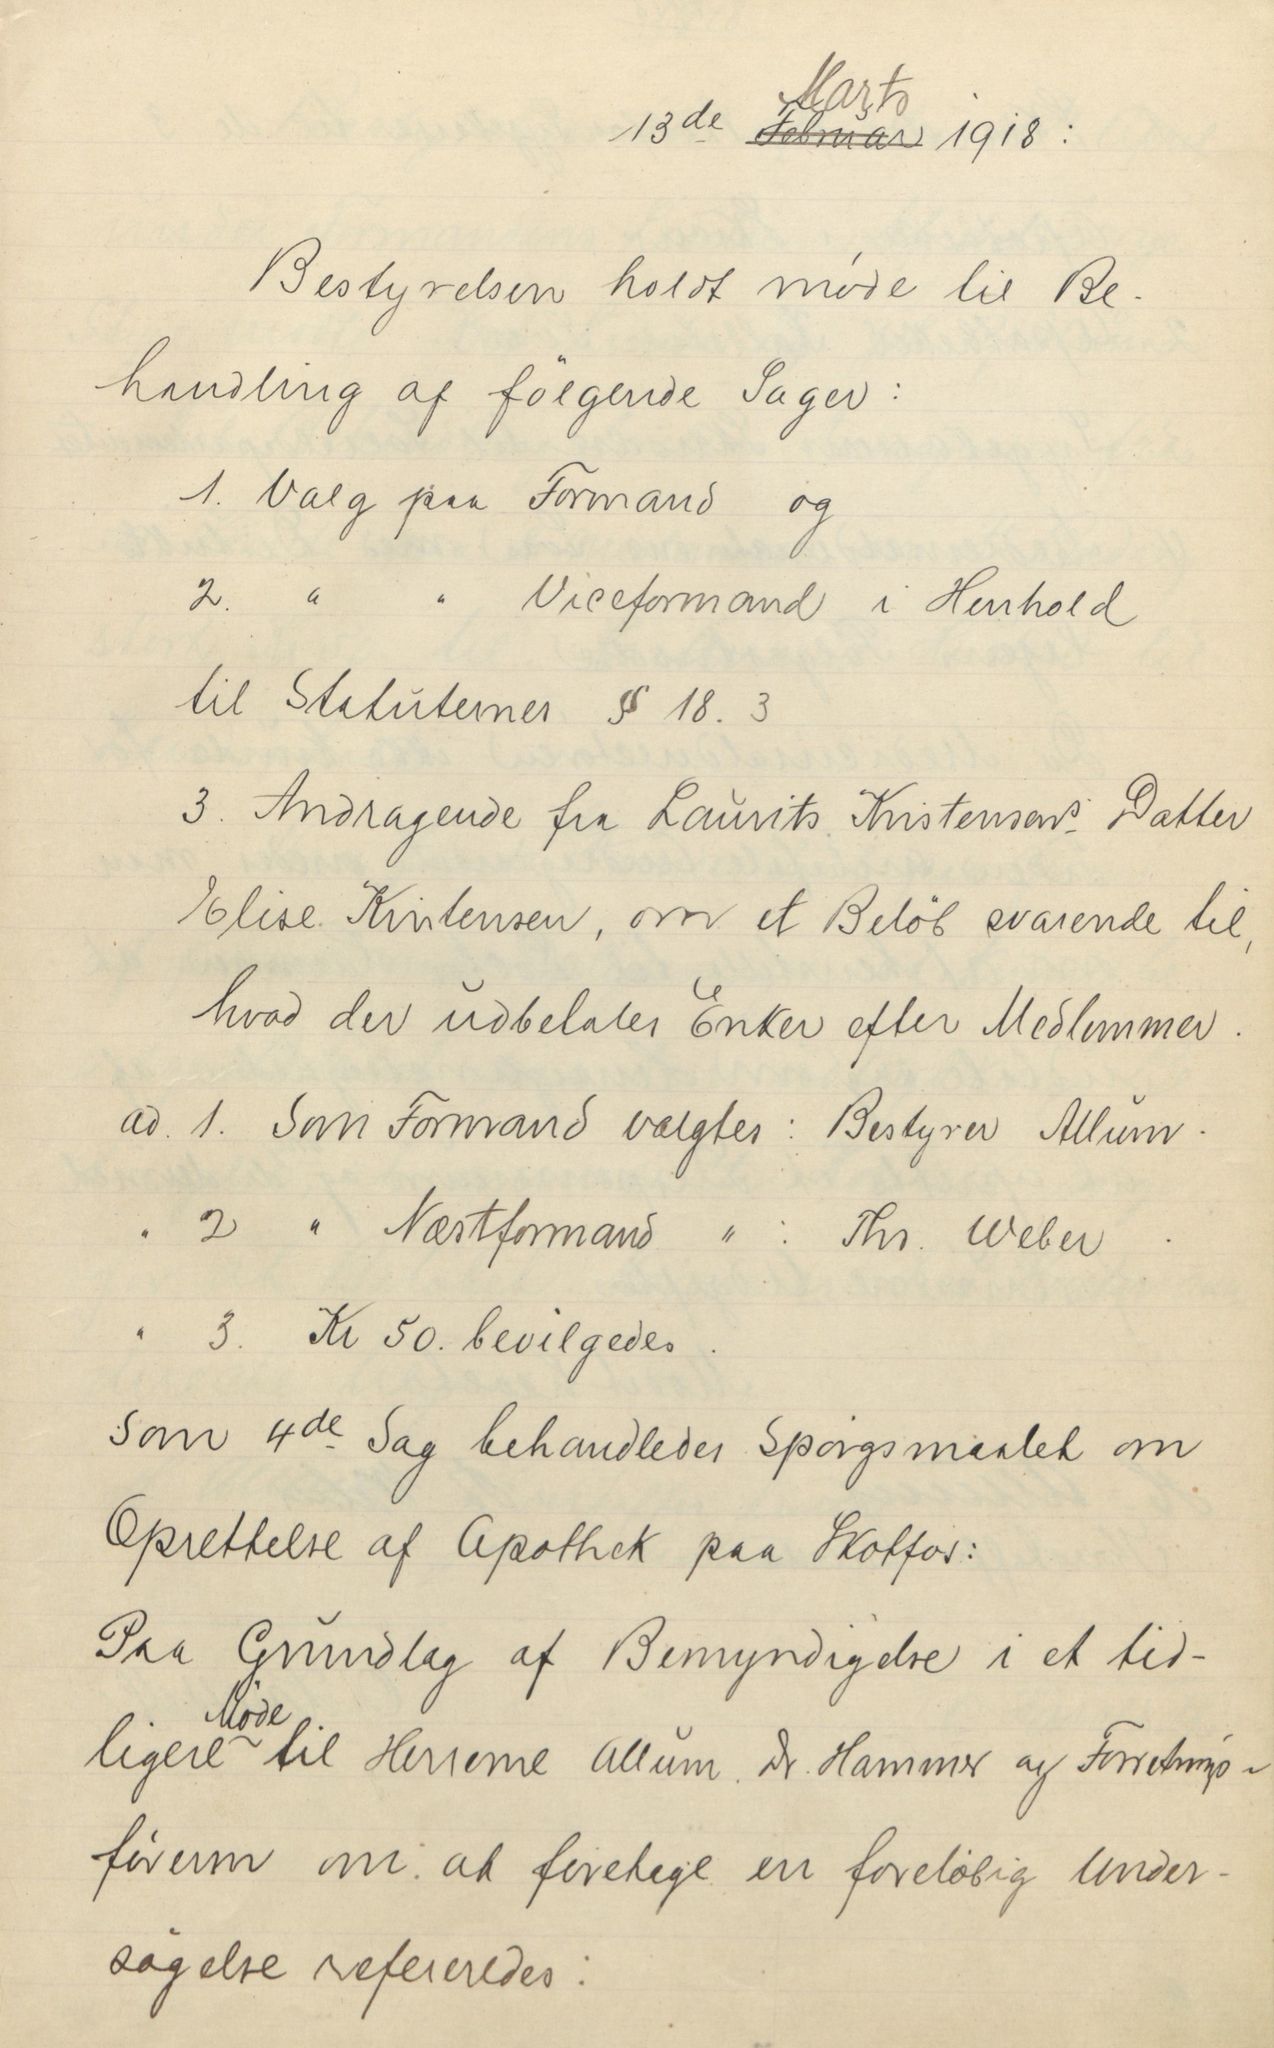 Marts
13de Februar 1918:
Bestyrelsen holdt möde til Be-
handling af fölgende Sager:
1. Valg paa Formand og
2. " " Viceformand i Henhold
til Statuternes § 18.3
3. Andragende fra Laurits Kristensens Datter
Elise Kristensen, om et Belöb svarende til,
hvad der udbetales Enker efter Medlemmer.
ad. 1. Som Formand valgtes: Bestyrer Allum.
" 2 " Næstformand " : Ths. Weber.
" 3. Kr 50. bevilgedes.
Som 4de Sag behandledes Spörgsmaalet om
Oprettelse af Apothek paa Skotfos:
Paa Grundlag af Bemyndigelse i et tid-
Möde
ligere til Herrerne Allum, Dr. Hammer og Forretnings-
föreren om at foretage en foreløbig Under-
sögelse refereredes: